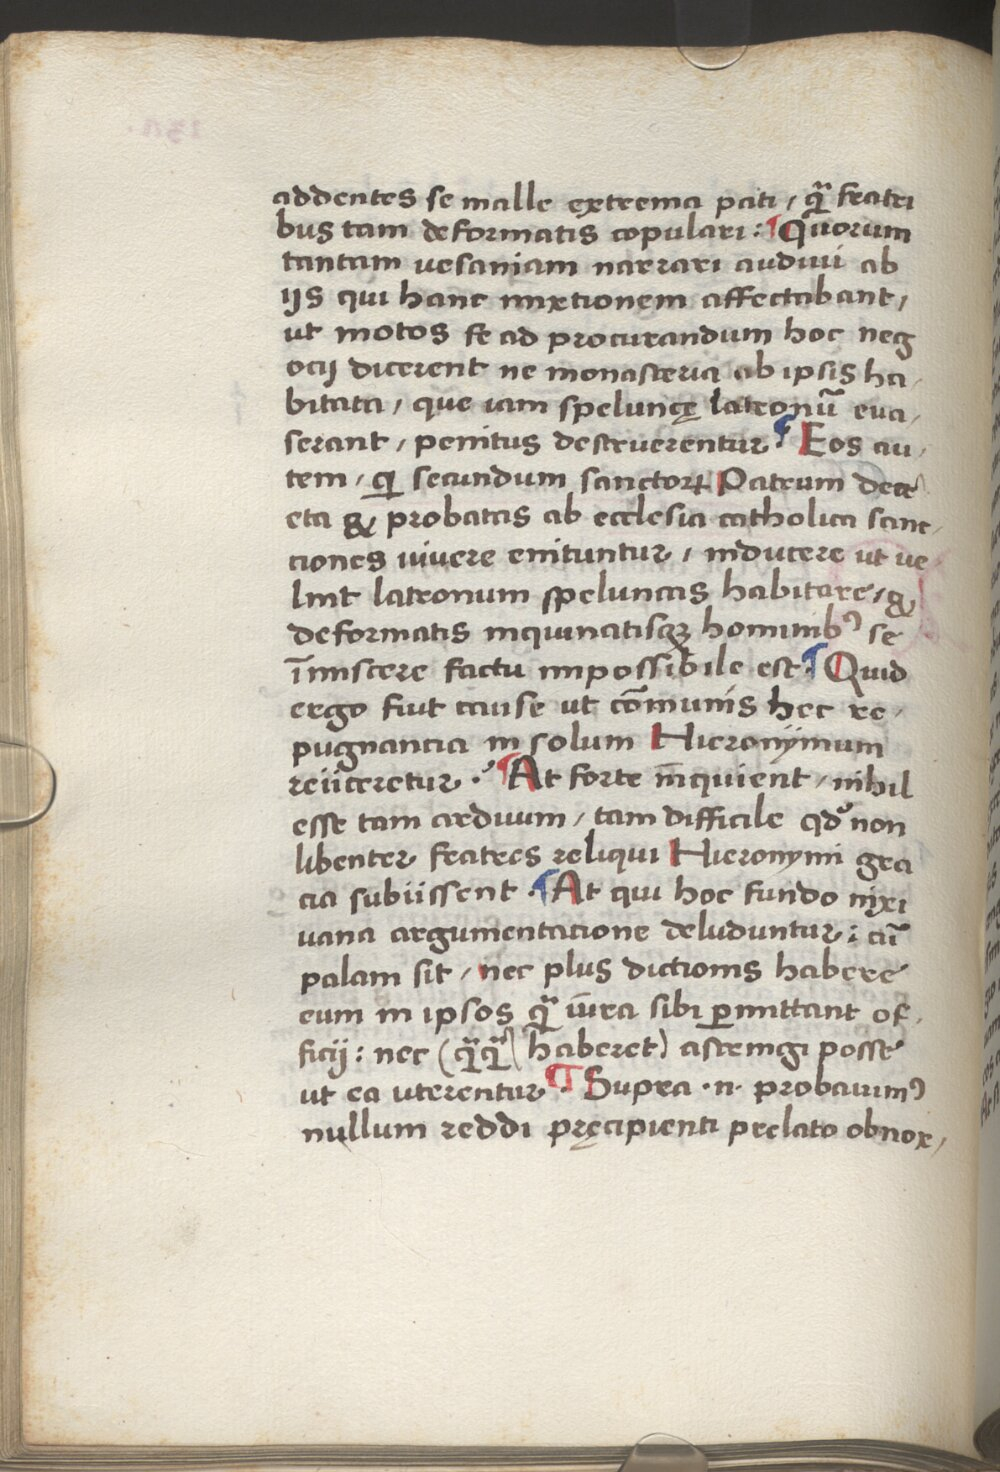 addentes se malle extrema pati / q̄ fratri
bus tam deformatis copulari : ¶ Quorum
tantam vesaniam narrari audiui ab
ijs qui hanc mixtionem affectabant /
ut motos se ad procurandum hoc neg
ocij dicerent ne monasteria ab ipsis ha /
bitata / que iam speluncę latronū eua /
serant / penitus destruerentur ¶ Eos au /
tem / q̄ secundum sanctorꝝ Patrum decr
eta & probatas ab ecclesia catholica sanc /
tiones viuere enituntur / inducere ut ve /
lint latronum speluncas habitare / &
deformatis inquinatisqꝫ hominibꝰ se
īmiscere factu impossibile est ¶ Quid
ergo fuit cause ut cōmunis hec re /
pugnantia in solum Hieronijmum
reiiceretur . ¶ At forte inquient / nihil
esse tam arduum / tam difficile qdͦ non
libenter fratres reliqui Hieronymi gra
cia subiissent . ¶ At qui hoc fundo nixi
uana argumentacione deluduntur : cū
palam sit / nec plus dictionis habere
eum in ipsos q̄ iura sibi ꝑmittant of /
ficij : nec ( q̄q̄ haberet ) astringi posse
ut ea uterentur ¶ Supra · n · probauimꝰ
nullum reddi pręcipienti prelato obnox /